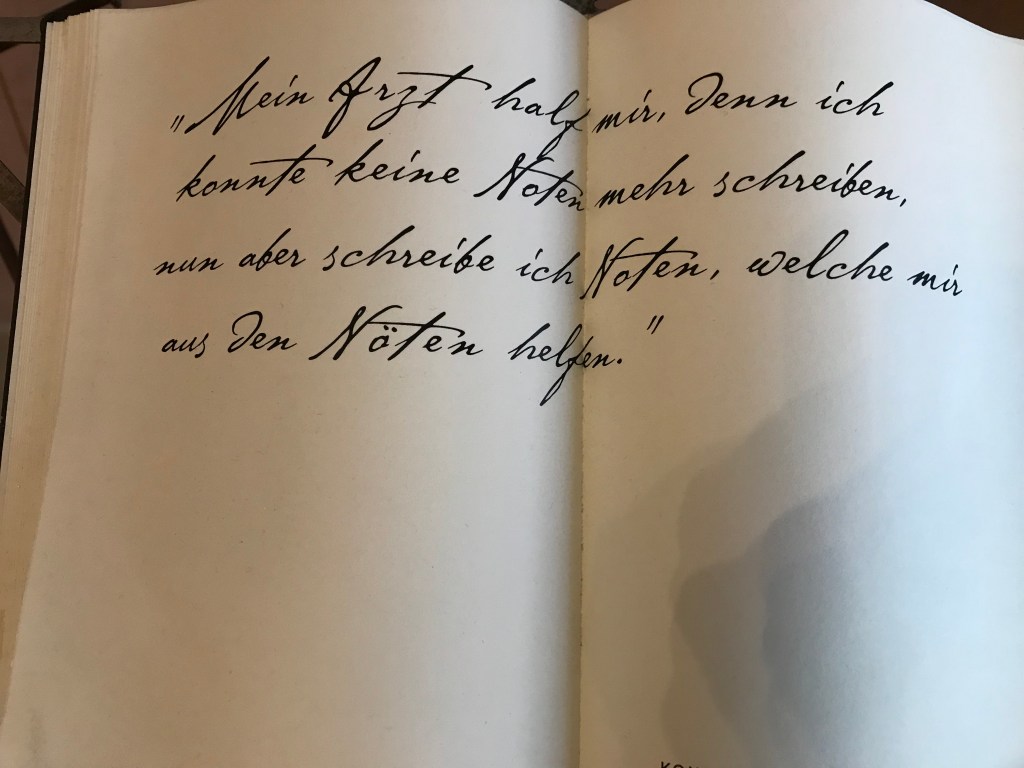 „Mein Arzt half mir, denn ich
konnte keine Noten mehr schreiben,
nun aber schreibe ich Noten, welche mir
aus den Nöten helfen."